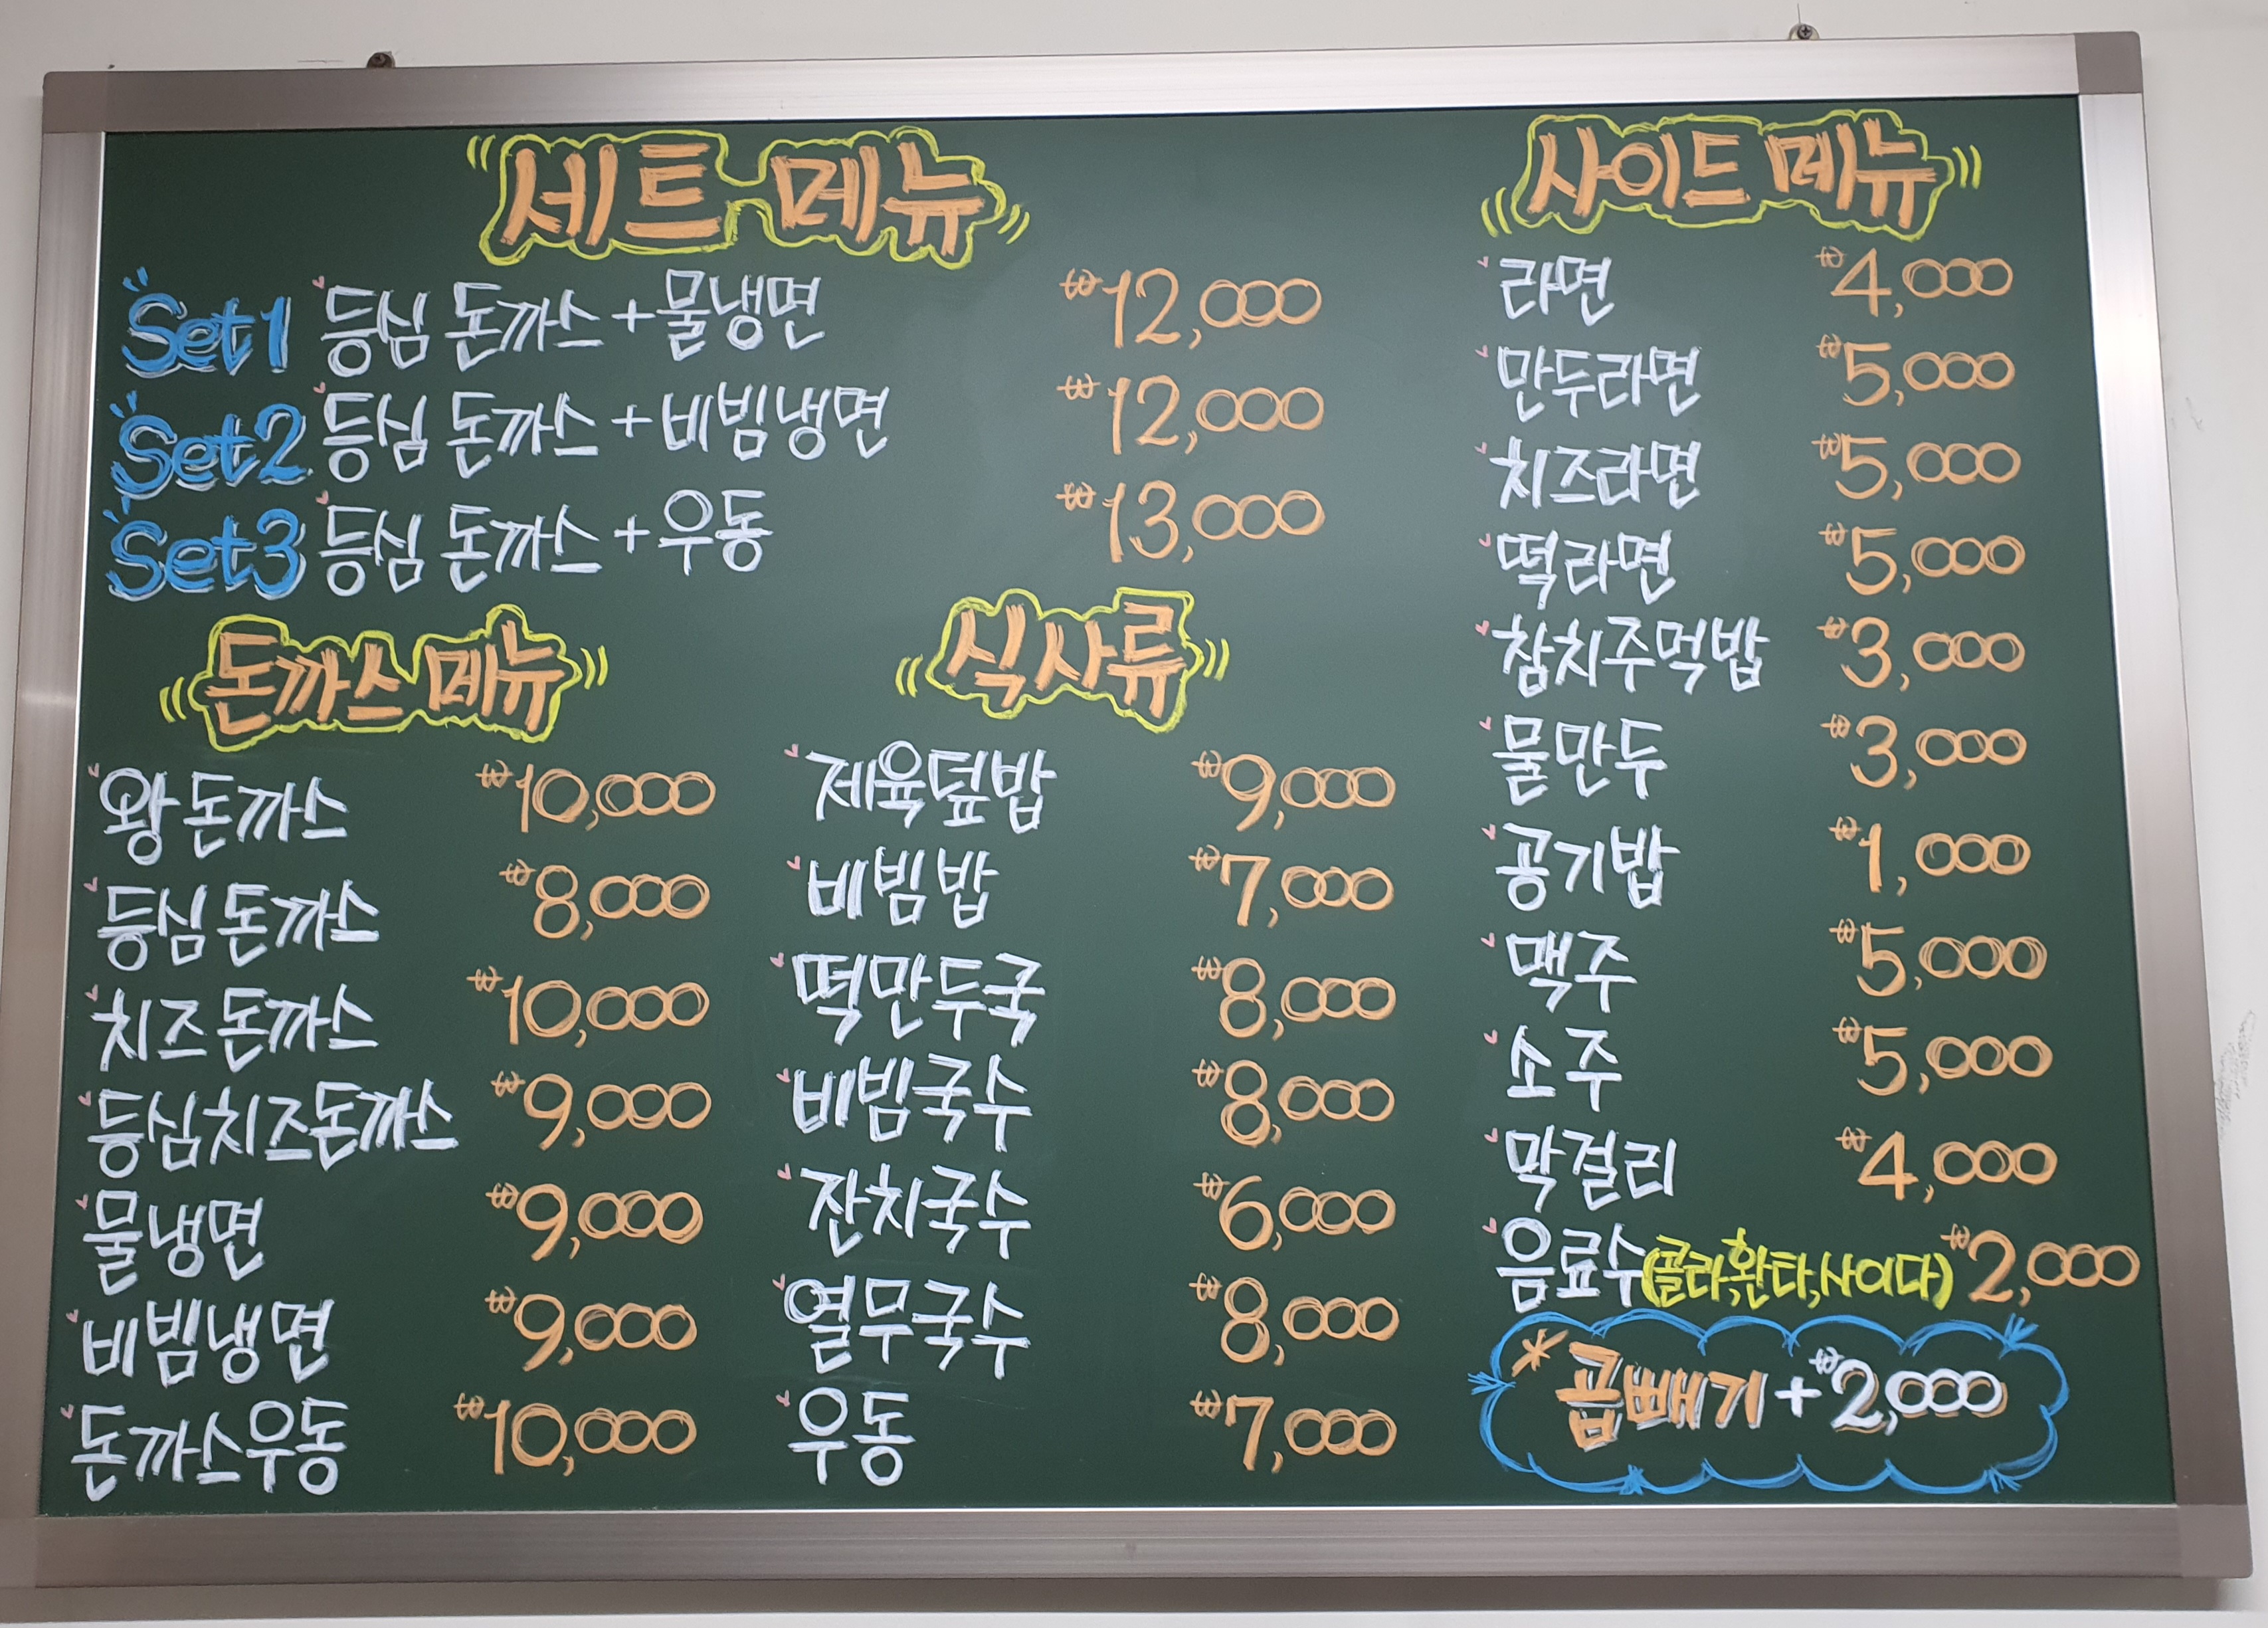 세트 메뉴
Set1 등심 돈까스 + 물냉면 ₩12,000
Set2 등심 돈까스 + 비빔냉면 ₩12,000
Set3 등심 돈까스 + 우동 ₩13,000
돈까스 메뉴
왕 돈까스 ₩10,000
등심 돈까스 ₩8,000
치즈 돈까스 ₩10,000
등심치즈돈까스 ₩9,000
물냉면 ₩9,000
비빔냉면 ₩9,000
돈까스우동 ₩10,000
식사류
제육덮밥 ₩9,000
비빔밥 ₩7,000
떡만두국 ₩8,000
비빔국수 ₩8,000
잔치국수 ₩6,000
열무국수 ₩8,000
우동 ₩7,000
사이드 메뉴
라면 ₩4,000
만두라면 ₩5,000
치즈라면 ₩5,000
떡라면 ₩5,000
참치주먹밥 ₩3,000
물만두 ₩3,000
공기밥 ₩1,000
맥주 ₩5,000
소주 ₩5,000
막걸리 ₩4,000
음료수(콜라,환타,사이다) ₩2,000
* 곱빼기 + ₩2,000